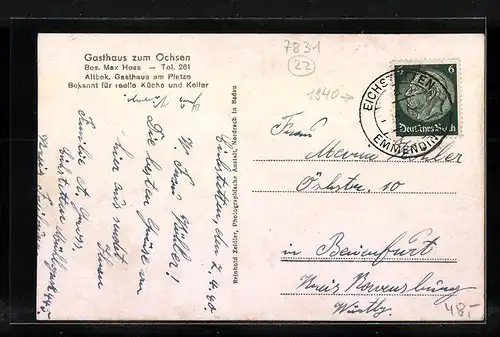 Gasthaus zum Ochsen
Bes. Max Hess — Tel. 261
Altbek. Gasthaus am Platze
Bekannt für reelle Küche und Keller
7831
22
1940 →
EICHSTETTEN
EMMENDINGEN
6
Deutsches Reich
Eichstetten, den 2.4.40.
W. Frau Köhler!
Die besten Grüße von
hier aus sendet
Ihnen
Familie
Eichstetten
Reinhold Zeißler, Photographische Anstalt, Nordrach in Baden
Frau
Köhler
10
in Baienfurt
Kreis Ravensburg
Württbg.
48,-